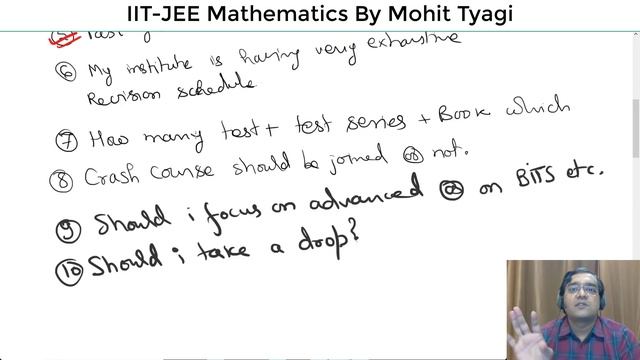 IIT-JEE Mathematics By Mohit Tyagi
⑥ My institute is having very exhaustive
Revision schedule
⑦ How many test + test series + Book which
⑧ Crash Course should be joined or not.
⑨ Should i focus on advanced or on BITS etc.
⑩ Should i take a drop?